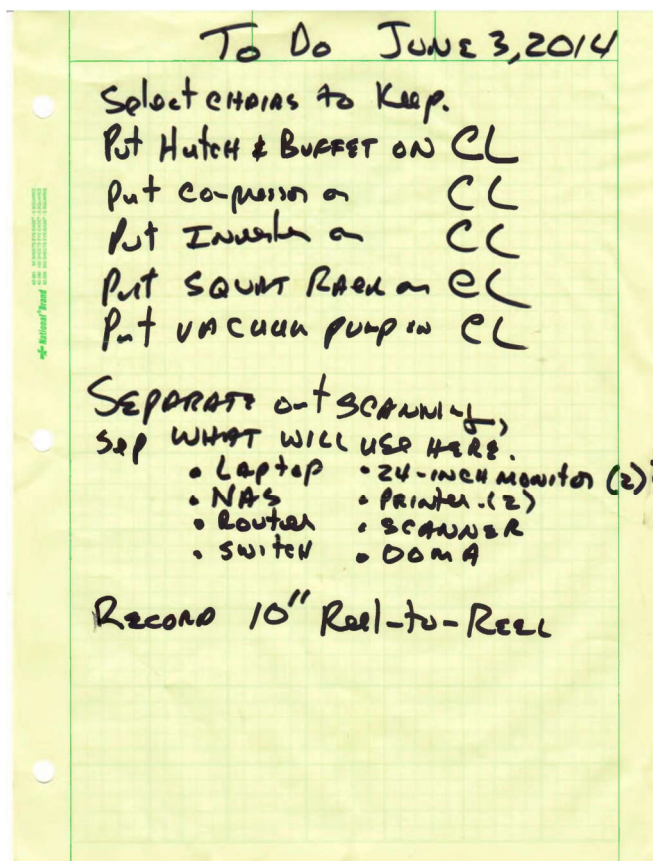 To Do June 3, 2014
Select chairs to Keep.
Put Hutch & Buffet on CL
Put compressor on CL
Put Inverter on CL
Put Squat Rack on CL
Put vacuum pump on CL
Separate out scanning,
sep what will use here.
• Laptop • 24-inch monitor (2)
• NAS • Printer (2)
• Router • Scanner
• Switch • OOMA
Record 10" Reel-to-Reel
National® Brand